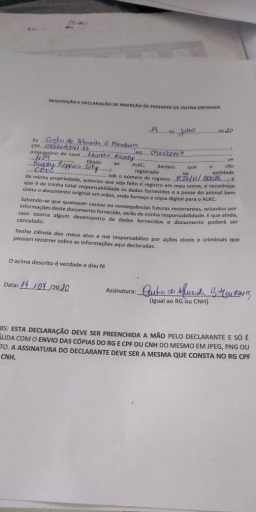 REQUISIÇÃO E DECLARAÇÃO DE INSERÇÃO DE PEDIGREE DE OUTRA ENTIDADE
14 de julho de 2020
Eu Cintia de Almeida
CPF
proprietário do canil
filiado ao ALKC, declaro que o cão
registrado na entidade
, sob o número de registro
de minha propriedade, autorizo que seja feito o registro em meu nome, e reconheço
que é de minha total responsabilidade os dados fornecidos e a posse do animal bem
como o documento original em mãos, onde forneço a cópia digital para o ALKC.
Sabendo-se que quaisquer causas ou consequências futuras recorrentes, oriundos por
informações deste documento fornecido, serão de minha responsabilidade. E que ainda,
caso ocorra algum desencontro de dados fornecidos o documento poderá ser
cancelado.
Tenho ciência dos meus atos e me responsabilizo por ações cíveis e criminais que
possam recorrer sobre as informações aqui declaradas.
O acima descrito é verdade e dou fé
Data: 14 / 07 / 2020 Assinatura:
(Igual ao RG ou CNH)
BS: ESTA DECLARAÇÃO DEVE SER PREENCHIDA A MÃO PELO DECLARANTE E SÓ É
ÁLIDA COM O ENVIO DAS CÓPIAS DO RG E CPF OU CNH DO MESMO EM JPEG, PNG OU
TO. A ASSINATURA DO DECLARANTE DEVE SER A MESMA QUE CONSTA NO RG CPF
CNH.